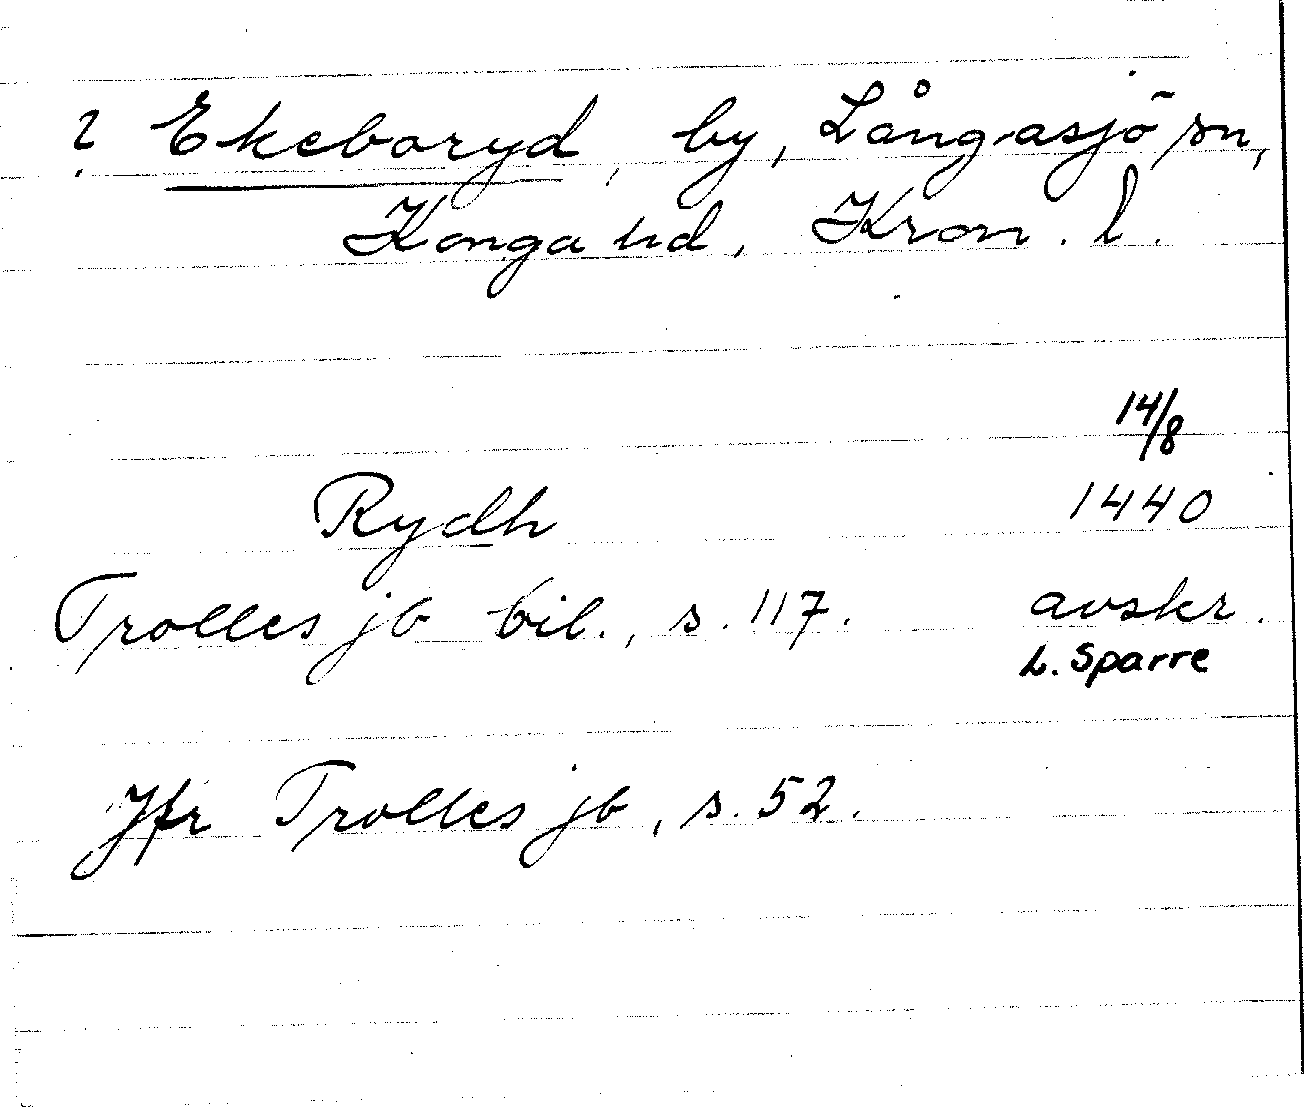 ? Ekeboryd, by, Långasjö sn,
Konga hd, Kron. l.
14/8
Rydh 1440
Trolles jb bil., s. 117. avskr.
L. Sparre
Jfr Trolles jb, s. 52.